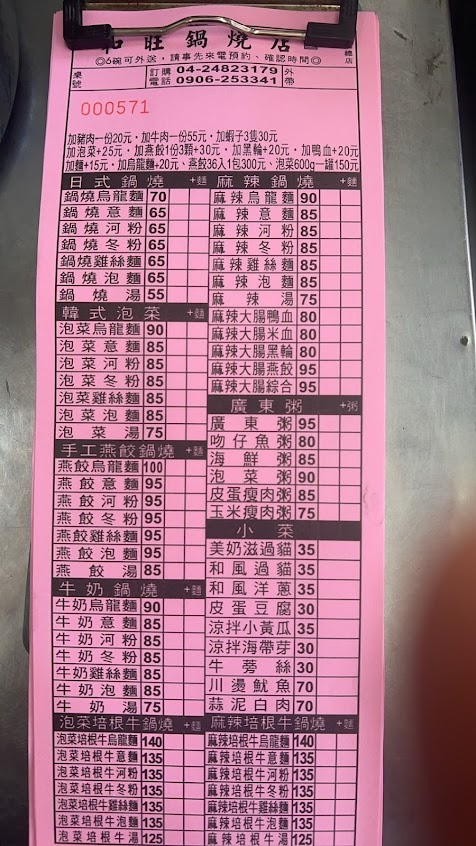 和旺鍋燒店
總店
◎6碗可外送，請事先來電預約、確認時間◎
桌號
訂購電話 04-24823179 0906-253341
外帶
000571
加豬肉一份20元，加牛肉一份55元，加蝦子3隻30元
加泡菜+25元，加燕餃1份3顆+30元，加黑輪+20元，加鴨血+20元
加麵+15元，加烏龍麵+20元，燕餃36入1包300元，泡菜600g一罐150元
日式鍋燒 +麵
鍋燒烏龍麵 70
鍋燒意麵 65
鍋燒河粉 65
鍋燒冬粉 65
鍋燒雞絲麵 65
鍋燒泡麵 65
鍋燒湯 55
韓式泡菜 +麵
泡菜烏龍麵 90
泡菜意麵 85
泡菜河粉 85
泡菜冬粉 85
泡菜雞絲麵 85
泡菜泡麵 85
泡菜湯 75
手工燕餃鍋燒 +麵
燕餃烏龍麵 100
燕餃意麵 95
燕餃河粉 95
燕餃冬粉 95
燕餃雞絲麵 95
燕餃泡麵 95
燕餃湯 85
牛奶鍋燒 +麵
牛奶烏龍麵 90
牛奶意麵 85
牛奶河粉 85
牛奶冬粉 85
牛奶雞絲麵 85
牛奶泡麵 85
牛奶湯 75
泡菜培根牛鍋燒 +麵
泡菜培根牛烏龍麵 140
泡菜培根牛意麵 135
泡菜培根牛河粉 135
泡菜培根牛冬粉 135
泡菜培根牛雞絲麵 135
泡菜培根牛泡麵 135
泡菜培根牛湯 125
麻辣鍋燒 +麵
麻辣烏龍麵 90
麻辣意麵 85
麻辣河粉 85
麻辣冬粉 85
麻辣雞絲麵 85
麻辣泡麵 85
麻辣湯 75
麻辣大腸鴨血 80
麻辣大腸米血 80
麻辣大腸黑輪 80
麻辣大腸燕餃 95
麻辣大腸綜合 95
廣東粥 +粥
廣東粥 95
吻仔魚粥 80
海鮮粥 85
泡菜粥 90
皮蛋瘦肉粥 85
玉米瘦肉粥 75
小菜
美奶滋過貓 35
和風過貓 35
和風洋蔥 35
皮蛋豆腐 30
涼拌小黃瓜 35
涼拌海帶芽 30
牛蒡絲 30
川燙魷魚 70
蒜泥白肉 70
麻辣培根牛鍋燒 +麵
麻辣培根牛烏龍麵 140
麻辣培根牛意麵 135
麻辣培根牛河粉 135
麻辣培根牛冬粉 135
麻辣培根牛雞絲麵 135
麻辣培根牛泡麵 135
麻辣培根牛湯 125